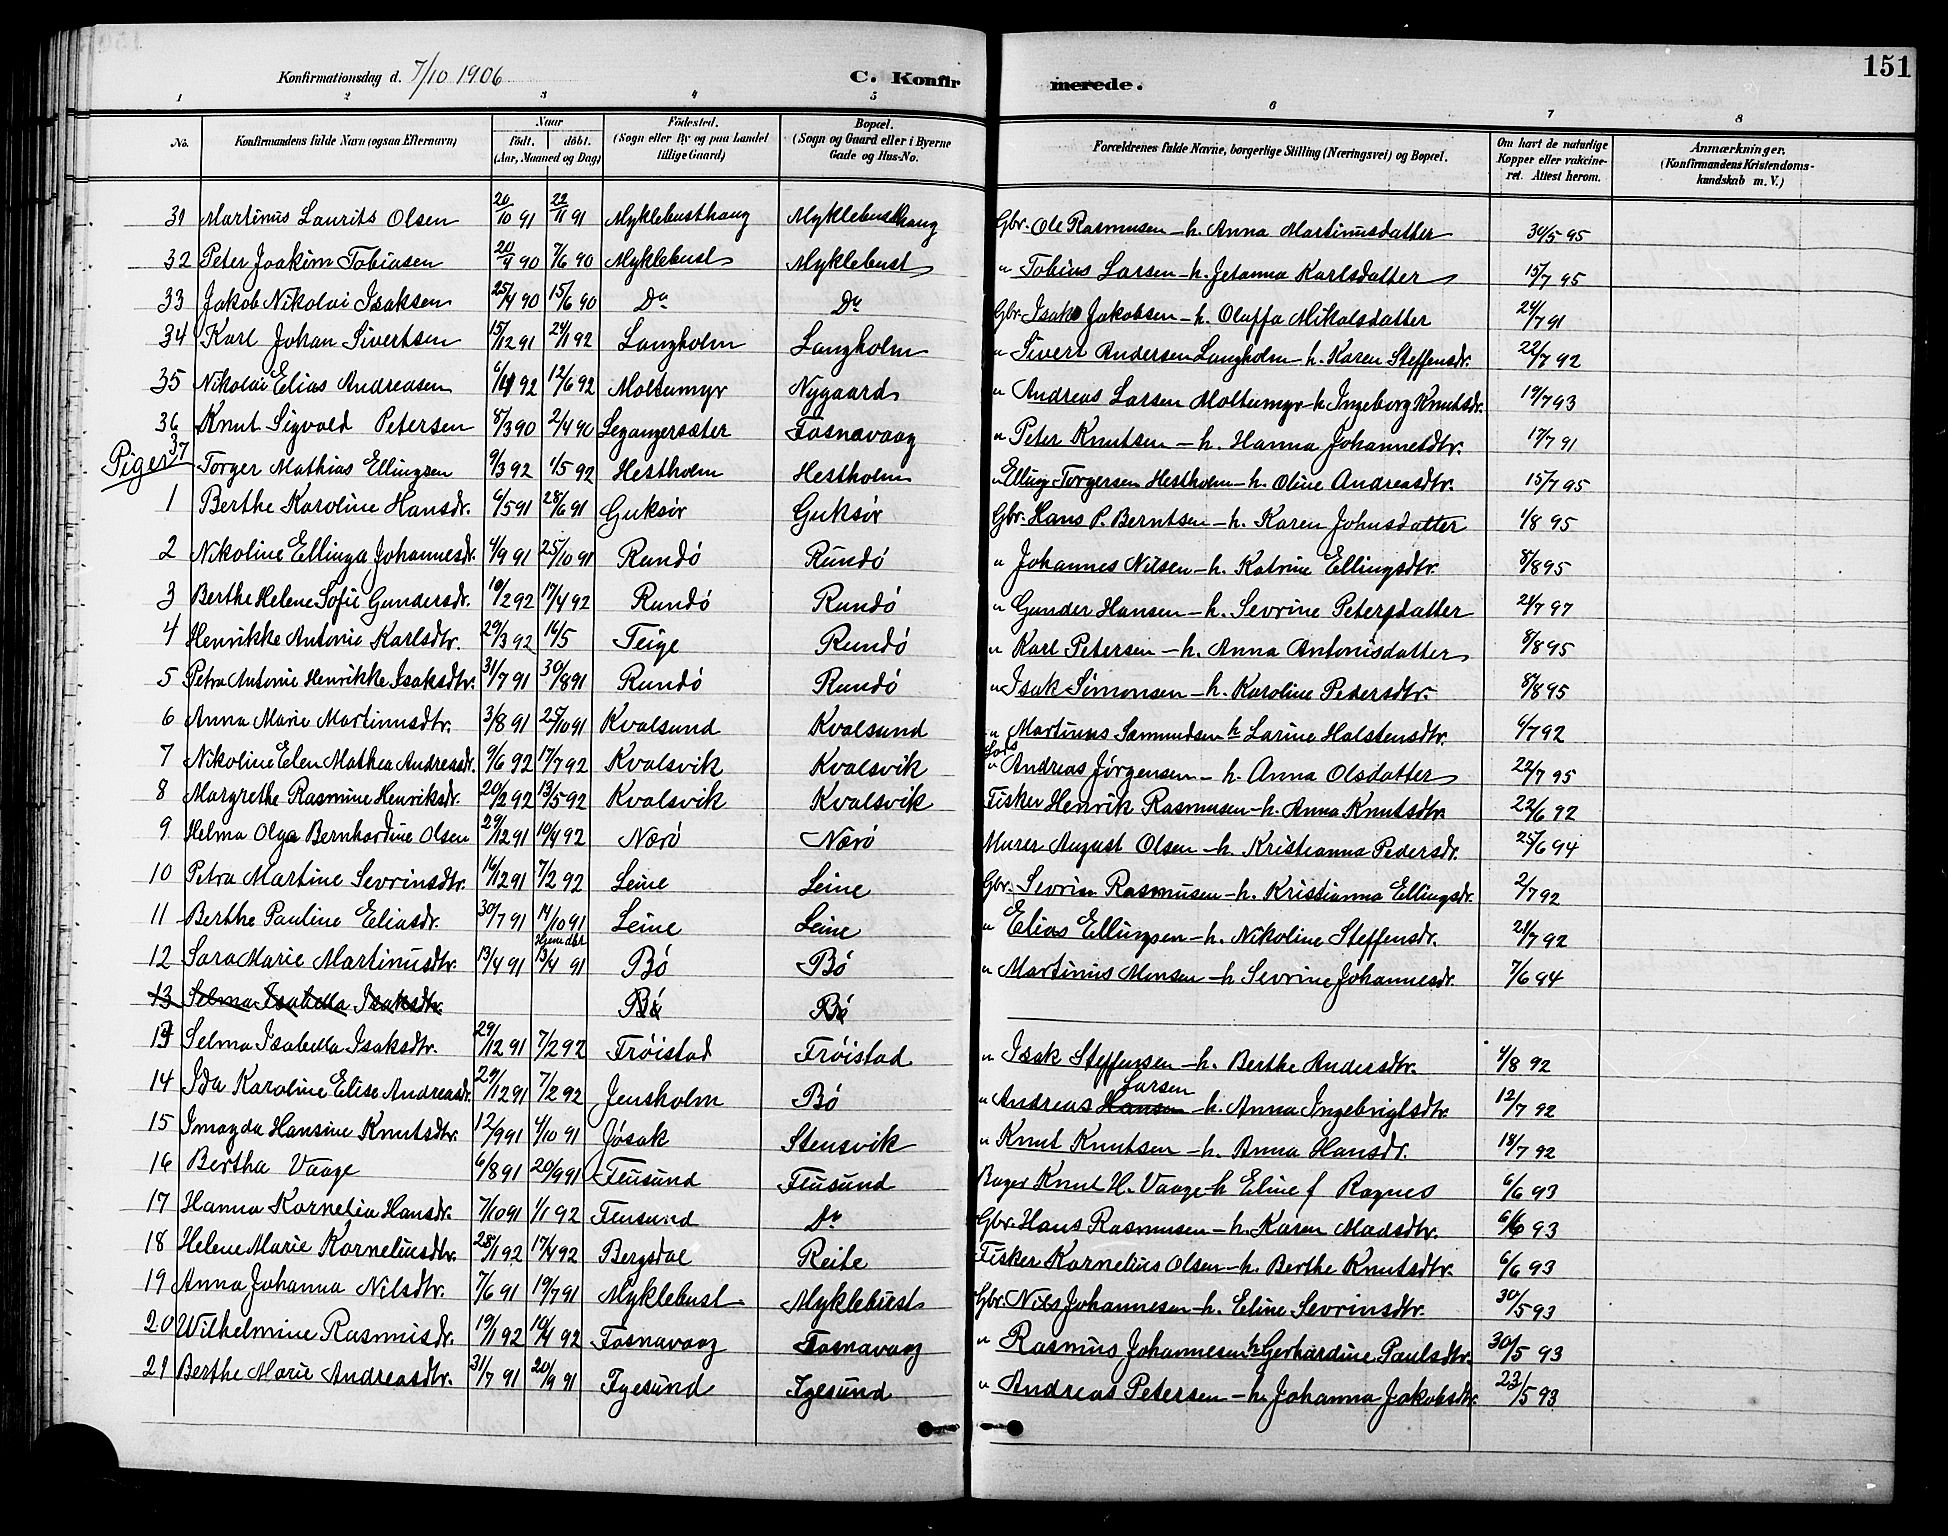 Konfirmationsdag d. 7/10 1906 C. Konfirmerede. 151
1 2 3 4 5 6 7 8
No. Konfirmandens fulde Navn (ogsaa Efternavn) Naar født. døbt. (Aar, Maaned og Dag) Fødested. (Sogn eller By og paa Landet tillige Gaard) Bopæl. (Sogn og Gaard eller i Byerne Gade og Hus-No. Forældrenes fulde Navne, borgerlige Stilling (Næringsvei) og Bopæl. Om havt de naturlige Kopper eller vakcineret. Attest herom. Anmærkninger. (Konfirmandens Kristendomskundskab m. V.)
31 Martinus Laurits Olsen 20/10 91 22/11 91 Myklebusthaug Myklebusthaug Gbr. Ole Rasmusen - h. Anna Martinusdatter 30/5 95
32 Peter Joakim Tobiasen 20/4 90 7/6 90 Myklebust Myklebust " Tobias Larsen - h. Jetanna Karlsdatter 15/7 95
33 Jakob Nikolai Isaksen 25/4 90 15/6 90 Do Do Gbr. Isak Jakobsen - h. Oluffa Nikolsdatter 24/7 91
34 Karl Johan Sivertsen 15/12 91 24/1 92 Langholm Langholm " Sivert Andersen Langholm - h. Karen Steffensdr. 22/7 92
35 Nikolai Elias Andreasen 6/4 92 12/6 92 Moltumyr Nygaard " Andreas Larsen Moltumyr - h. Ingeborg Knutsdr. 19/7 93
36 Knut Sigvald Petersen 8/3 90 2/4 90 Leganger­sæter Fosnavaag " Peter Knutsen - h. Hanna Johannesdtr. 17/7 91
37 Torger Mathias Ellingsen 9/3 92 1/5 92 Hestholm Hestholm " Elling Torgersen Hestholm - h. Oline Andreasdtr. 15/7 95
Piger
1 Berthe Karoline Hansdr. 6/5 91 28/6 91 Guksør Guksør Gbr. Hans P. Berntsen - h. Karen Johnsdatter 1/8 95
2 Nikoline Ellinga Johannesdr. 4/9 91 25/10 91 Rundø Rundø " Johannes Nilsen - h. Katrine Ellingsdtr. 8/8 95
3 Berthe Helene Sofie Gundersdr. 10/2 92 17/4 92 Rundø Rundø " Gunder Hansen - h. Sevrine Petersdatter 24/7 97
4 Henrikke Antonie Karlsdtr. 29/3 92 16/5 Teige Rundø " Karl Petersen - h. Anna Antonisdatter 8/8 95
5 Petra Antonie Henrikke Isaksdtr. 31/7 91 30/8 91 Rundø Rundø " Isak Simonsen - h. Karoline Pedersdtr. 8/8 95
6 Anna Marie Martinusdtr. 3/8 91 25/10 91 Kvalsund Kvalsund " Martinus Samundsen h Larine Halstensdtr. 6/7 92
7 Nikoline Elen Mathea Andreasdr. 9/6 92 17/7 92 Kvalsvik Kvalsvik Lods " Andreas Jørgensen - h. Anna Olsdatter 22/7 95
8 Margrethe Rasmine Henriksdr. 20/2 92 13/5 92 Kvalsvik Kvalsvik Fisker Henrik Rasmusen - h. Anna Knutsdtr. 22/6 92
9 Helma Olga Bernhardine Olsen 29/12 91 10/4 92 Nærø Nærø Murer August Olsen - h. Kristianna Pedersdr. 25/6 94
10 Petra Martine Sevrinsdtr. 16/12 91 7/2 92 Leine Leine Gbr. Sevrin Rasmusen - h. Kristianna Ellingsdr. 2/7 92
11 Berthe Pauline Eliasdr. 30/7 91 14/10 91 Leine Leine " Elias Ellingsen - h. Nikoline Steffensdr. 21/7 92
12 Sara Marie Martinusdtr. 13/4 91 Hjemdbt 13/4 91 Bø Bø " Martinus Monsen - h Sevrine Johannesdr. 7/6 94
13 Selma Isabella Isaksdtr. Bø Bø
13 Selma Isabella Isaksdtr. 29/12 91 7/2 92 Frøistad Frøistad " Isak Steffensen - h. Berthe Andersdtr. 4/8 92
14 Ida Karoline Elise Andreasdr. 29/12 91 7/2 92 Jensholm Bø " Andreas Hansen Larsen - h. Anna Ingebrigtsdtr. 12/7 92
15 Imagda Hansine Knutsdtr. 12/9 91 4/10 91 Jøsak Stensvik " Knut Knutsen - h. Anna Hansdr. 18/7 92
16 Bertha Vaage 6/8 91 20/9 91 Flusund Flusund Bager Knut H. Vaage - h Eline f Ragnes 6/6 93
17 Hanna Kornelia Hansdr. 7/10 91 1/1 92 Flusund Do Gbr. Hans Rasmusen - h. Karen Madsdtr. 6/6 93
18 Helene Marie Korneliusdtr. 28/1 92 17/4 92 Bergsdal Reite Fisker Kornelius Olsen - h. Berthe Knutsdtr. 6/6 93
19 Anna Johanna Nilsdtr. 7/6 91 19/7 91 Myklebust Myklebust Gbr. Nils Johannesen - h. Eline Sevrinsdtr. 30/5 93
20 Wilhelmine Rasmusdr. 19/1 92 18/4 92 Fosnavaag Fosnavaag " Rasmus Johannesen h Gerhardine Paulsdtr. 30/5 93
21 Berthe Marie Andreasdtr. 31/7 91 20/9 91 Igesund Igesund " Andreas Petersen - h. Johanna Jakobsdtr. 23/5 93